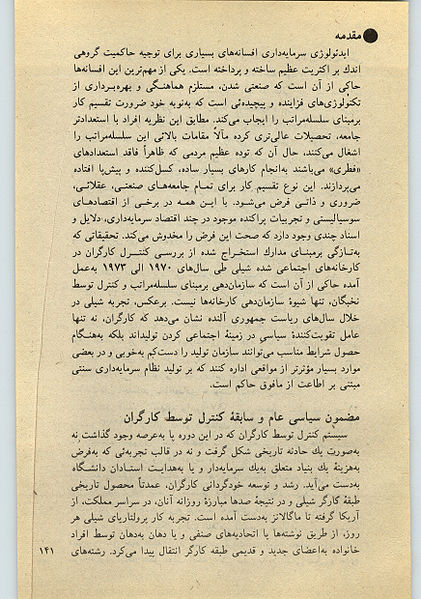 مقدمه
ایدئولوژی سرمایه‌داری افسانه‌های بسیاری برای توجیه حاکمیت گروهی
اندك بر اکثریت عظیم ساخته و پرداخته است. یکی از مهم‌ترین این افسانه‌ها
حاکی از آن است که صنعتی شدن، مستلزم هماهنگی و بهره‌برداری از
تکنولوژی‌های فزاینده و پیچیده‌ئی است که به‌نوبه خود ضرورت تقسیم کار
برمبنای سلسله‌مراتب را ایجاب می‌کند. مطابق این نظریه افراد با استعدادتر
جامعه، تحصیلات عالی‌تری کرده مآلاً مقامات بالائی این سلسله‌مراتب را
اشغال می‌کنند، حال آن که توده عظیم مردمی که ظاهراً فاقد استعدادهای
«فطری» می‌باشند به‌انجام کارهای بسیار ساده، کسل‌کننده و پیش‌پا افتاده
می‌پردازند. این نوع تقسیم کار برای تمام جامعه‌های صنعتی، عقلائی،
ضروری و ذاتی فرض می‌شود. با این همه در برخی از اقتصادهای
سوسیالیستی و تجربیات پراکنده موجود در چند اقتصاد سرمایه‌داری، دلایل و
اسناد چندی وجود دارد که صحت این فرض را مخدوش می‌کند. تحقیقاتی که
به‌تازگی برمبنای مدارك استخراج شده از بررسی کنترل کارگران در
کارخانه‌های اجتماعی شده شیلی طی سال‌های ۱۹۷۰ الی ۱۹۷۳ به‌عمل
آمده حاکی از آن است که سازمان‌دهی برمبنای سلسله‌مراتب و کنترل توسط
نخبگان، تنها شیوهٔ سازمان‌دهی کارخانه‌ها نیست. برعکس، تجربه شیلی در
خلال سال‌های ریاست جمهوری آلنده نشان می‌دهد که کارگران، نه تنها
عامل تقویت‌کنندهٔ سیاسی در زمینهٔ اجتماعی کردن تولیداند بلکه به‌هنگام
حصول شرایط مناسب می‌توانند سازمان تولید را دست‌کم به‌خوبی و در بعضی
موارد بسیار مؤثرتر از مواقعی اداره کنند که بر تولید نظام سرمایه‌داری سنتی
مبتنی بر اطاعت از مافوق حاکم است.
مضمون سیاسی عام و سابقهٔ کنترل توسط کارگران
سیستم کنترل توسط کارگران که در این دوره پا به‌عرصه وجود گذاشت نه
به‌صورت یك حادثه تاریخی شکل گرفت و نه در قالب تجربه‌ئی که به‌فرض
به‌هزینهٔ یك بنیاد متعلق به‌یك سرمایه‌دار و یا به‌هدایت استادان دانشگاه
به‌دست می‌آید. رشد و توسعه خودگردانی کارگران، عمدتاً محصول تاریخی
طبقهٔ کارگر شیلی و در نتیجهٔ صدها مبارزهٔ روزانه آنان، در سراسر مملکت، از
آریکا گرفته تا ماگالانز به‌دست آمده است. تجربه کار پرولتاریای شیلی هر
روز، از طریق نوشته‌ها یا اتحادیه‌های صنفی و یا دهان به‌دهان توسط افراد
خانواده به‌اعضای جدید و قدیمی طبقه کارگر انتقال پیدا می‌کرد. رشته‌های
۱۴۱